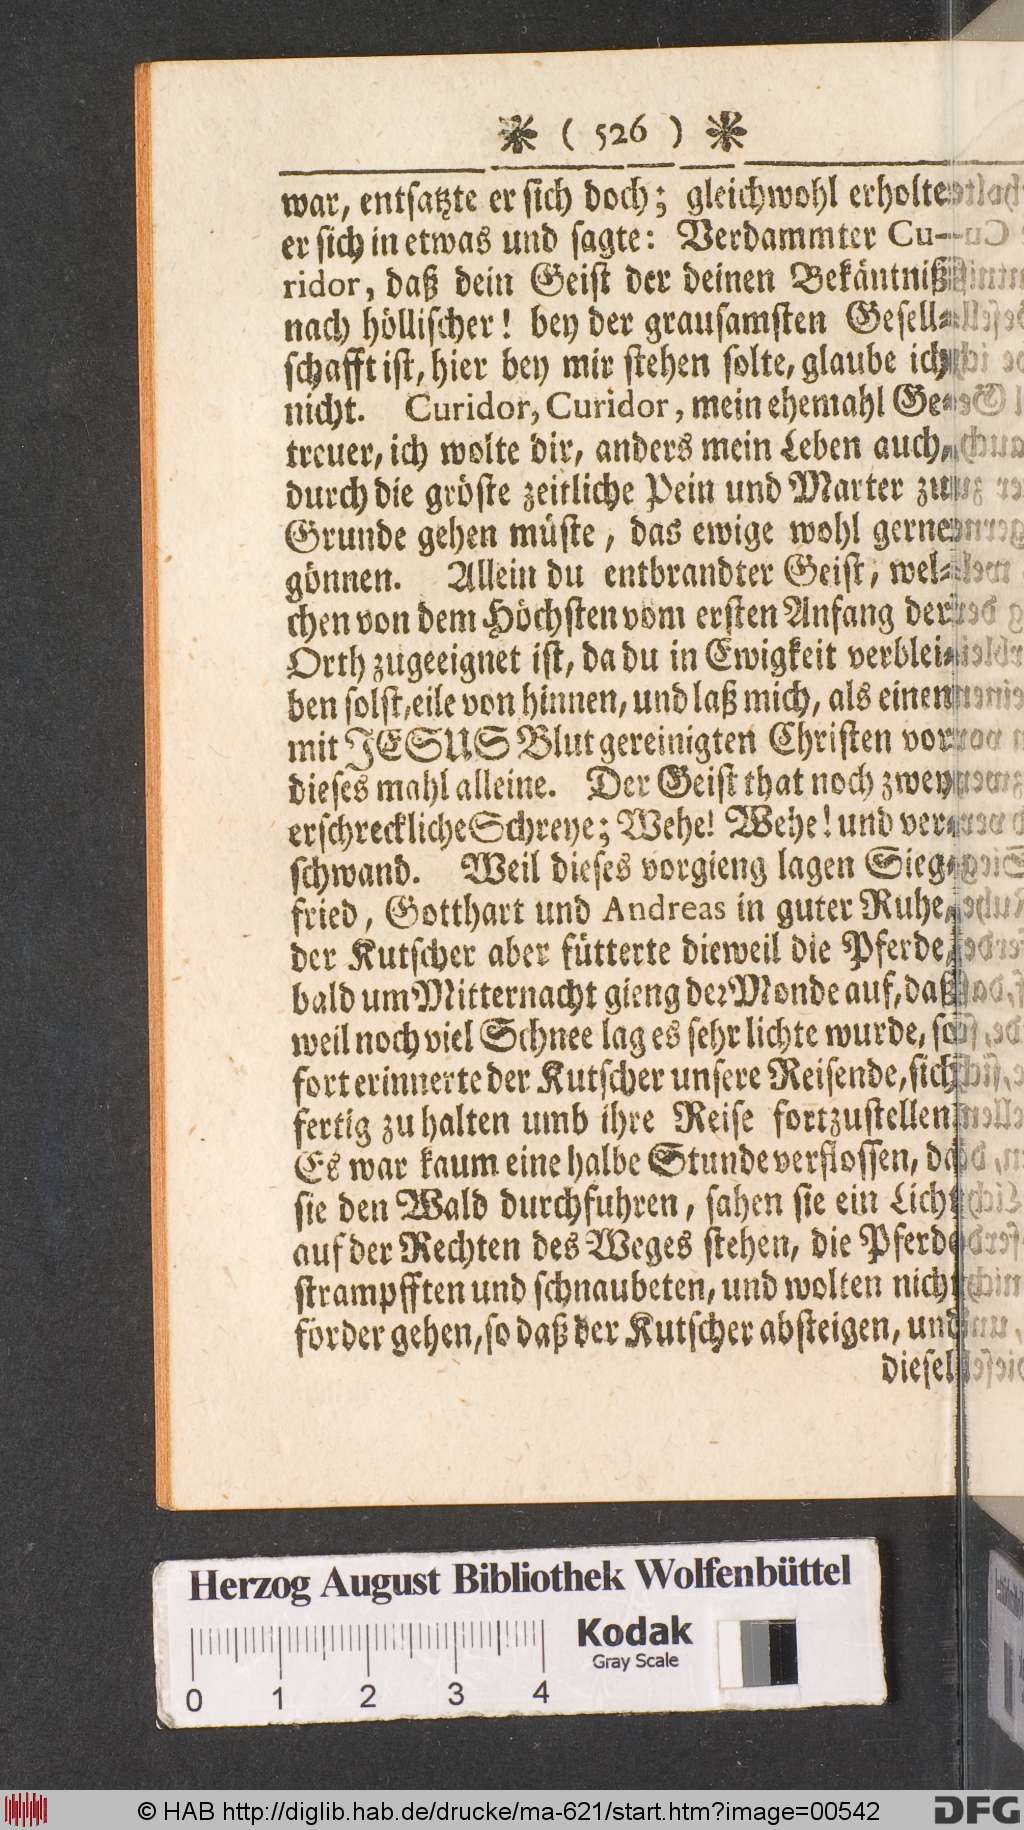 ( 526 )
war, entsatzte er sich doch; gleichwohl erholte
er sich in etwas und sagte: Verdammter Cu-
ridor, daß dein Geist der deinen Bekäntniß
nach höllischer! bey der grausamsten Gesell-
schafft ist, hier bey mir stehen solte, glaube ich
nicht. Curidor, Curidor, mein ehemahl Ge-
treuer, ich wolte dir, anders mein Leben auch,
durch die gröste zeitliche Pein und Marter zu
Grunde gehen müste, das ewige wohl gerne
gönnen. Allein du entbrandter Geist, wel-
chen von dem Höchsten vom ersten Anfang der
Orth zugeeignet ist, da du in Ewigkeit verblei-
ben solst, eile von hinnen, und laß mich, als einen
mit JESUS Blut gereinigten Christen vor
dieses mahl alleine. Der Geist that noch zwey
erschreckliche Schreye; Wehe! Wehe! und ver-
schwand. Weil dieses vorgieng lagen Sieg-
fried, Gotthart und Andreas in guter Ruhe,
der Kutscher aber fütterte dieweil die Pferde,
bald um Mitternacht gieng der Monde auf, daß
weil noch viel Schnee lag es sehr lichte wurde, so
fort erinnerte der Kutscher unsere Reisende, sich
fertig zu halten umb ihre Reise fortzustellen
Es war kaum eine halbe Stunde verflossen, da
sie den Wald durchfuhren, sahen sie ein Licht
auf der Rechten des Weges stehen, die Pferde
strampfften und schnaubeten, und wolten nicht
förder gehen, so daß der Kutscher absteigen, und
diesel
Herzog August Bibliothek Wolfenbüttel
Kodak
Gray Scale
0 1 2 3 4
© HAB http://diglib.hab.de/drucke/ma-621/start.htm?image=00542
DFG